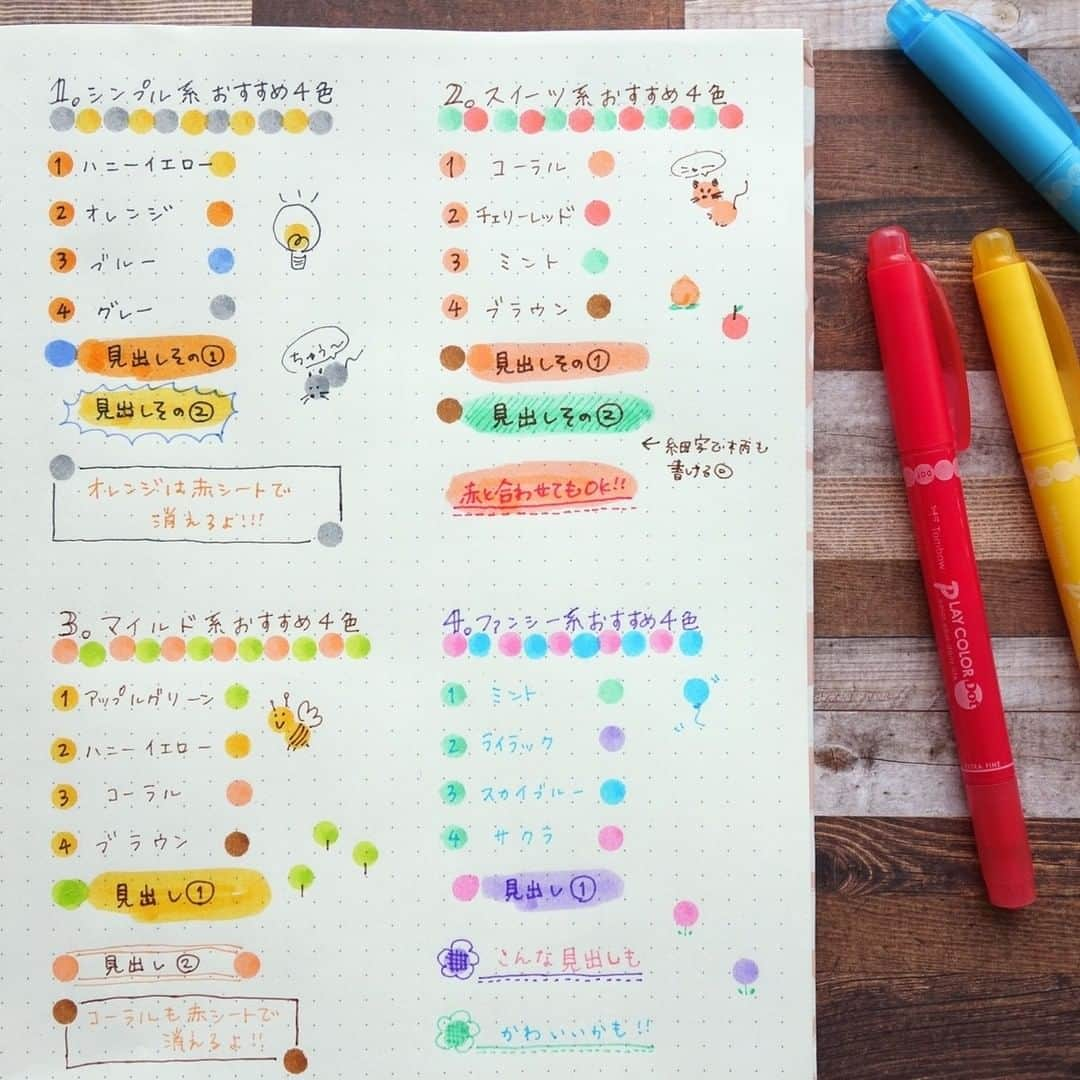 1。シンプル系おすすめ4色
1 ハニーイエロー
2 オレンジ
3 ブルー
4 グレー
見出しその①
見出しその②
ちゅう〜
オレンジは赤シートで
消えるよ!!!
2。スイーツ系おすすめ4色
1 コーラル
2 チェリーレッド
3 ミント
4 ブラウン
ニャー
見出しその①
見出しその②
←細字で柄も
書ける◎
赤と合わせてもOK!!
3。マイルド系おすすめ4色
1 アップルグリーン
2 ハニーイエロー
3 コーラル
4 ブラウン
見出し①
見出し②
コーラルも赤シートで
消えるよ!!
4。ファンシー系おすすめ4色
1 ミント
2 ライラック
3 スカイブルー
4 サクラ
見出し①
こんな見出しも
かわいいかも!!
Tombow
PLAY COLOR Dot
EXTRA FINE